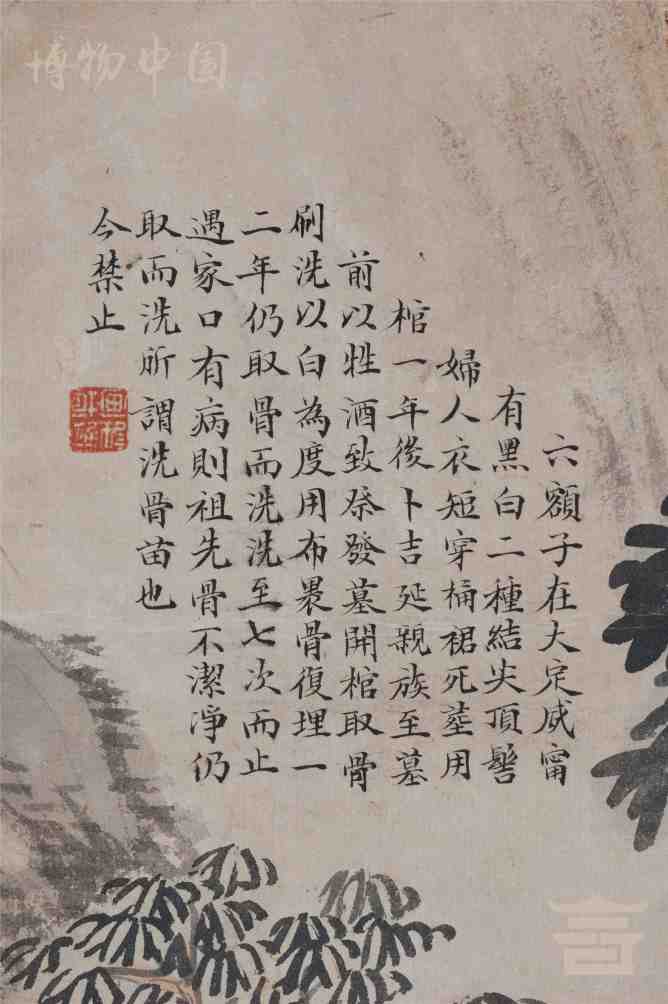 博物中国
六額子在大定咸甯
有黑白二種結尖頂髻
婦人衣短穿桶裙死塟用
棺一年後卜吉延親族至墓
前以牲酒致祭發墓開棺取骨
刷洗以白為度用布褁骨復埋一
二年仍取骨而洗洗至七次而止
遇家口有病則祖先骨不潔凈仍
取而洗所謂洗骨苗也
今禁止